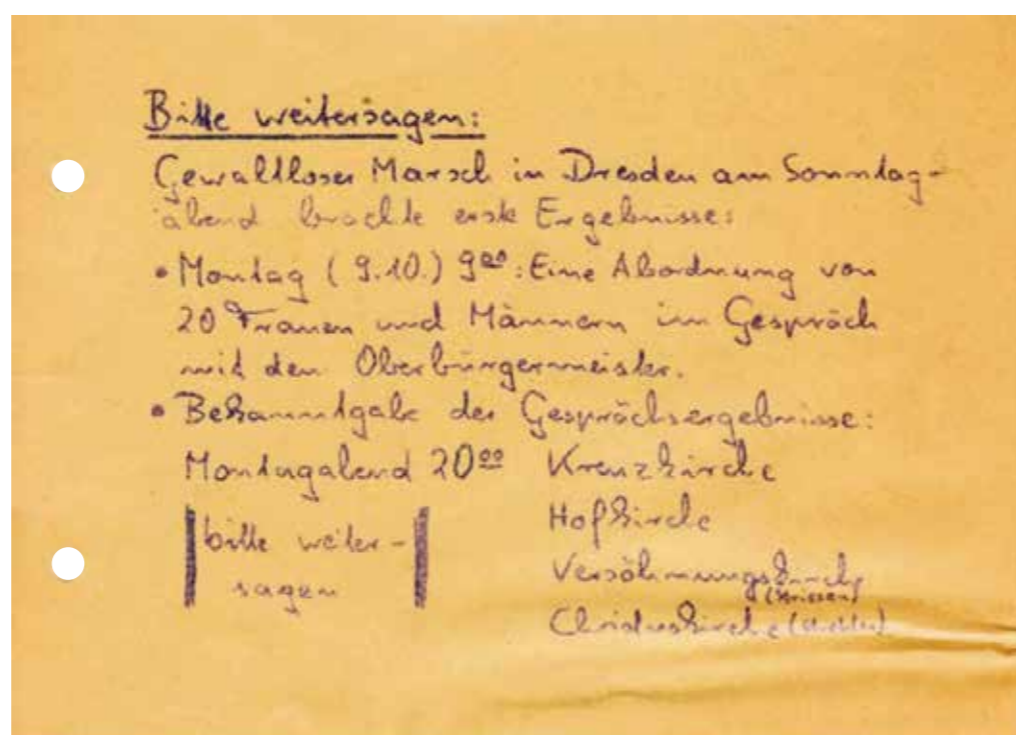 Bitte weitersagen:
Gewaltloser Marsch in Dresden am Sonntag-
abend brachte erste Ergebnisse:
• Montag (9.10.) 9⁰⁰: Eine Abordnung von
20 Frauen und Männern im Gespräch
mit dem Oberbürgermeister.
• Bekanntgabe der Gesprächsergebnisse:
Montagabend 20⁰⁰ Kreuzkirche
Hofkirche
bitte weiter-
sagen
Versöhnungskirche
(Striesen)
Christuskirche